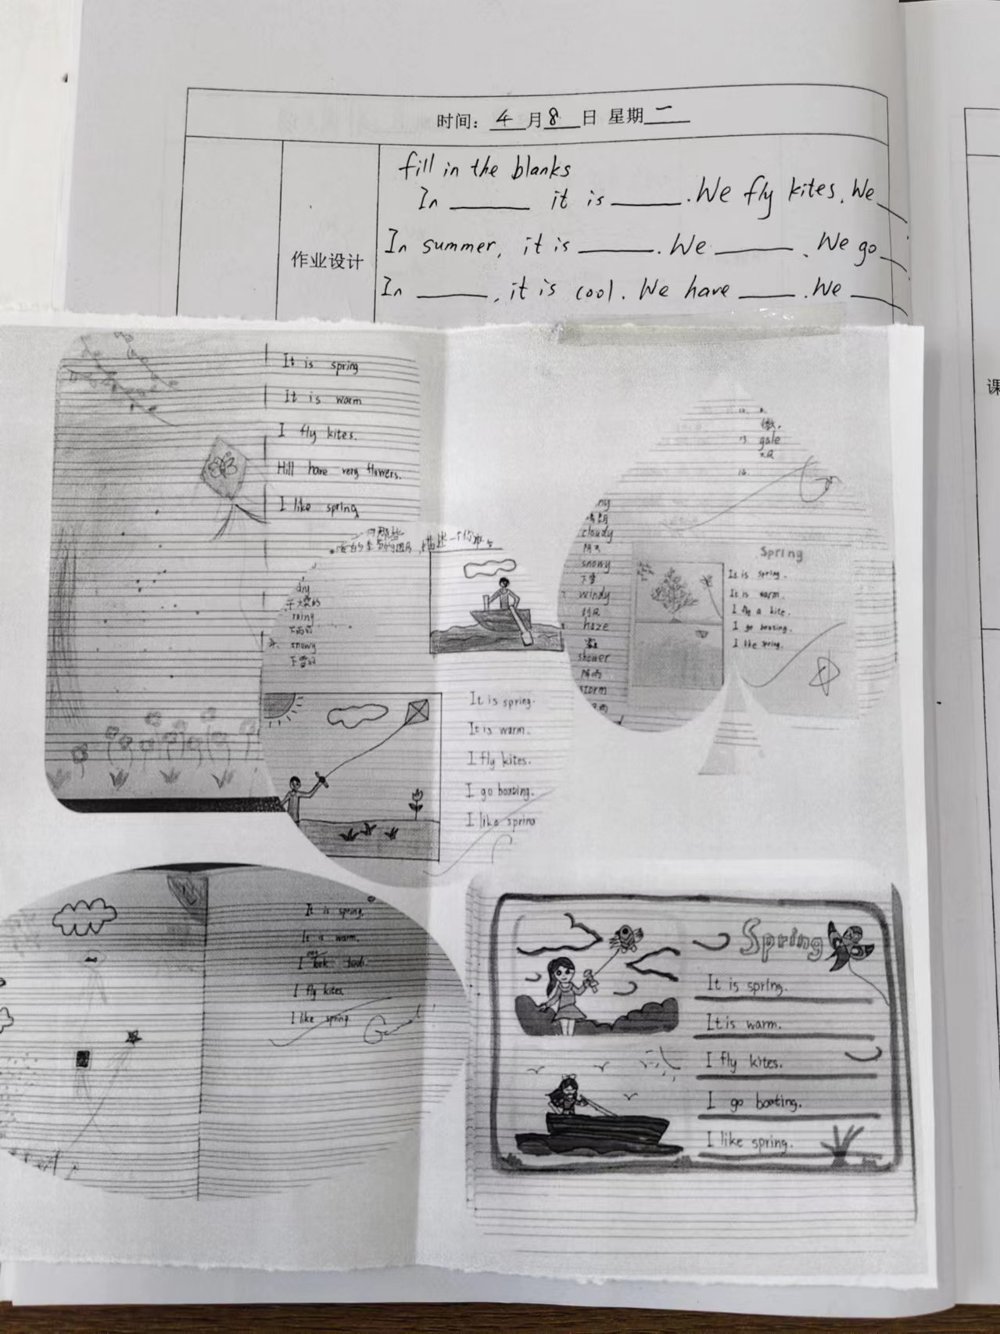 时间: 4 月 8 日 星期 一
作业设计
fill in the blanks
In ______ it is ______. We fly kites. We
In summer, it is ______. We ______. We go
In ______, it is cool. We have ______. We
课
It is spring
It is warm
I fly kites.
Hill have very flowers.
I like spring
描述一个你
dry
干燥的
rainy
下雨的
snowy
下雪的
It is spring.
It is warm.
I fly kites.
I go boating.
I like spring
gale
大风
cloudy
阴天
snowy
下雪
windy
haze
shower
阵雨
storm
Spring
It is spring.
It is warm.
I fly a kite.
I go boating.
I like spring.
It is spring.
It is warm.
I fly kites.
I like spring
Good
Spring
It is spring.
It is warm.
I fly kites.
I go boating.
I like spring.